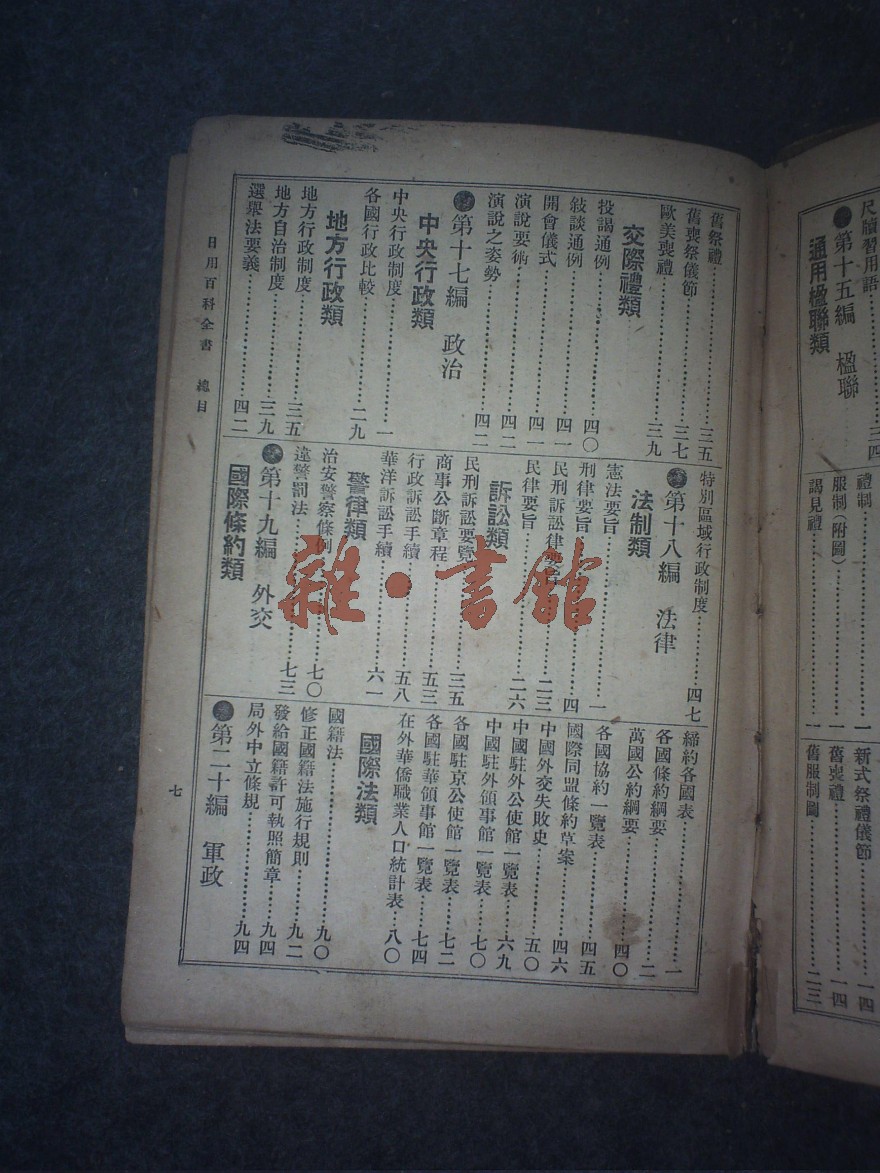 尺牘習用語……三四
第十五編 楹聯
通用楹聯類
禮制……一
服制(附圖)……一
謁見禮……一
新式祭禮儀節……一四
舊喪禮……一四
舊服制圖……二三
舊祭禮……三五
舊喪祭儀節……三七
歐美喪禮……三九
交際禮類
投謁通例……四〇
敍談通例……四一
開會儀式……四一
演說要術……四二
演說之姿勢……四二
第十七編 政治
中央行政類
中央行政制度……一
各國行政比較……二九
地方行政類
地方行政制度……三五
地方自治制度……三九
選舉法要義……四二
特別區域行政制度……四七
第十八編 法律
法制類
憲法要旨……一
刑律要旨……四
民刑訴訟律要旨……二三
民律要旨……二六
訴訟類
民刑訴訟要覽……三五
商事公斷章程……五三
行政訴訟手續……五八
華洋訴訟手續……六一
警律類
治安警察條例……七〇
違警罰法……七三
第十九編 外交
國際條約類
締約各國表……一
各國條約綱要……二
萬國公約綱要……四〇
各國協約一覽表……四五
國際同盟條約草案……四六
中國外交失敗史……五〇
中國駐外公使館一覽表……六九
中國駐外領事館一覽表……七〇
各國駐京公使館一覽表……七二
各國駐華領事館一覽表……七四
在外華僑職業人口統計表……八〇
國際法類
國籍法……九〇
修正國籍法施行規則……九二
發給國籍許可執照簡章……九四
局外中立條規……九四
第二十編 軍政
日用百科全書 總目
七
雜·書館